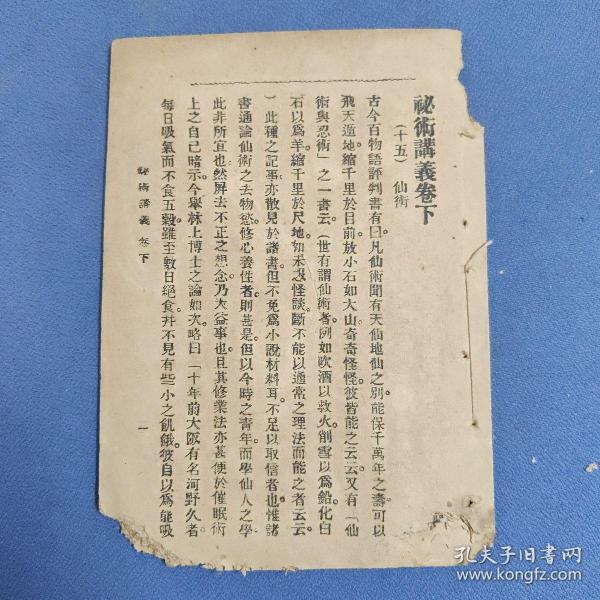 祕術講義卷下
(十五) 仙術
古今百物語評判書有曰。凡仙術聞有天仙地仙之別。能保千萬年之壽。可以
飛天遁地。縮千里於目前。放小石如大山。奇奇怪怪。彼皆能之云云。又有「仙
術與忍術」之一書云。(世有謂仙術者。例如吹酒以救火。削雪以爲鉛。化白
石以爲羊。縮千里於尺地。如未思怪談。斷不能以通常之理法而能之者云云。
)此種之記事。亦散見於諸書。但不免爲小說材料耳。不足以取信者也。惟諸
書通論仙術之去物慾。修心養性者。則甚是。但以今時之靑年。而學仙人之學
此非所宜也。然屏去不正之想念。乃大益事也。且其修業法。亦甚便於催眠術
上之自己暗示。今擧林上博士之論如次。略曰「十年前大阪有名河野久者
每日吸氣而不食五穀。雖至數日絕食。幷不見有些小之飢餓。彼自以爲能吸
祕術講義 卷下
一
孔夫子旧书网
www.kongfz.com